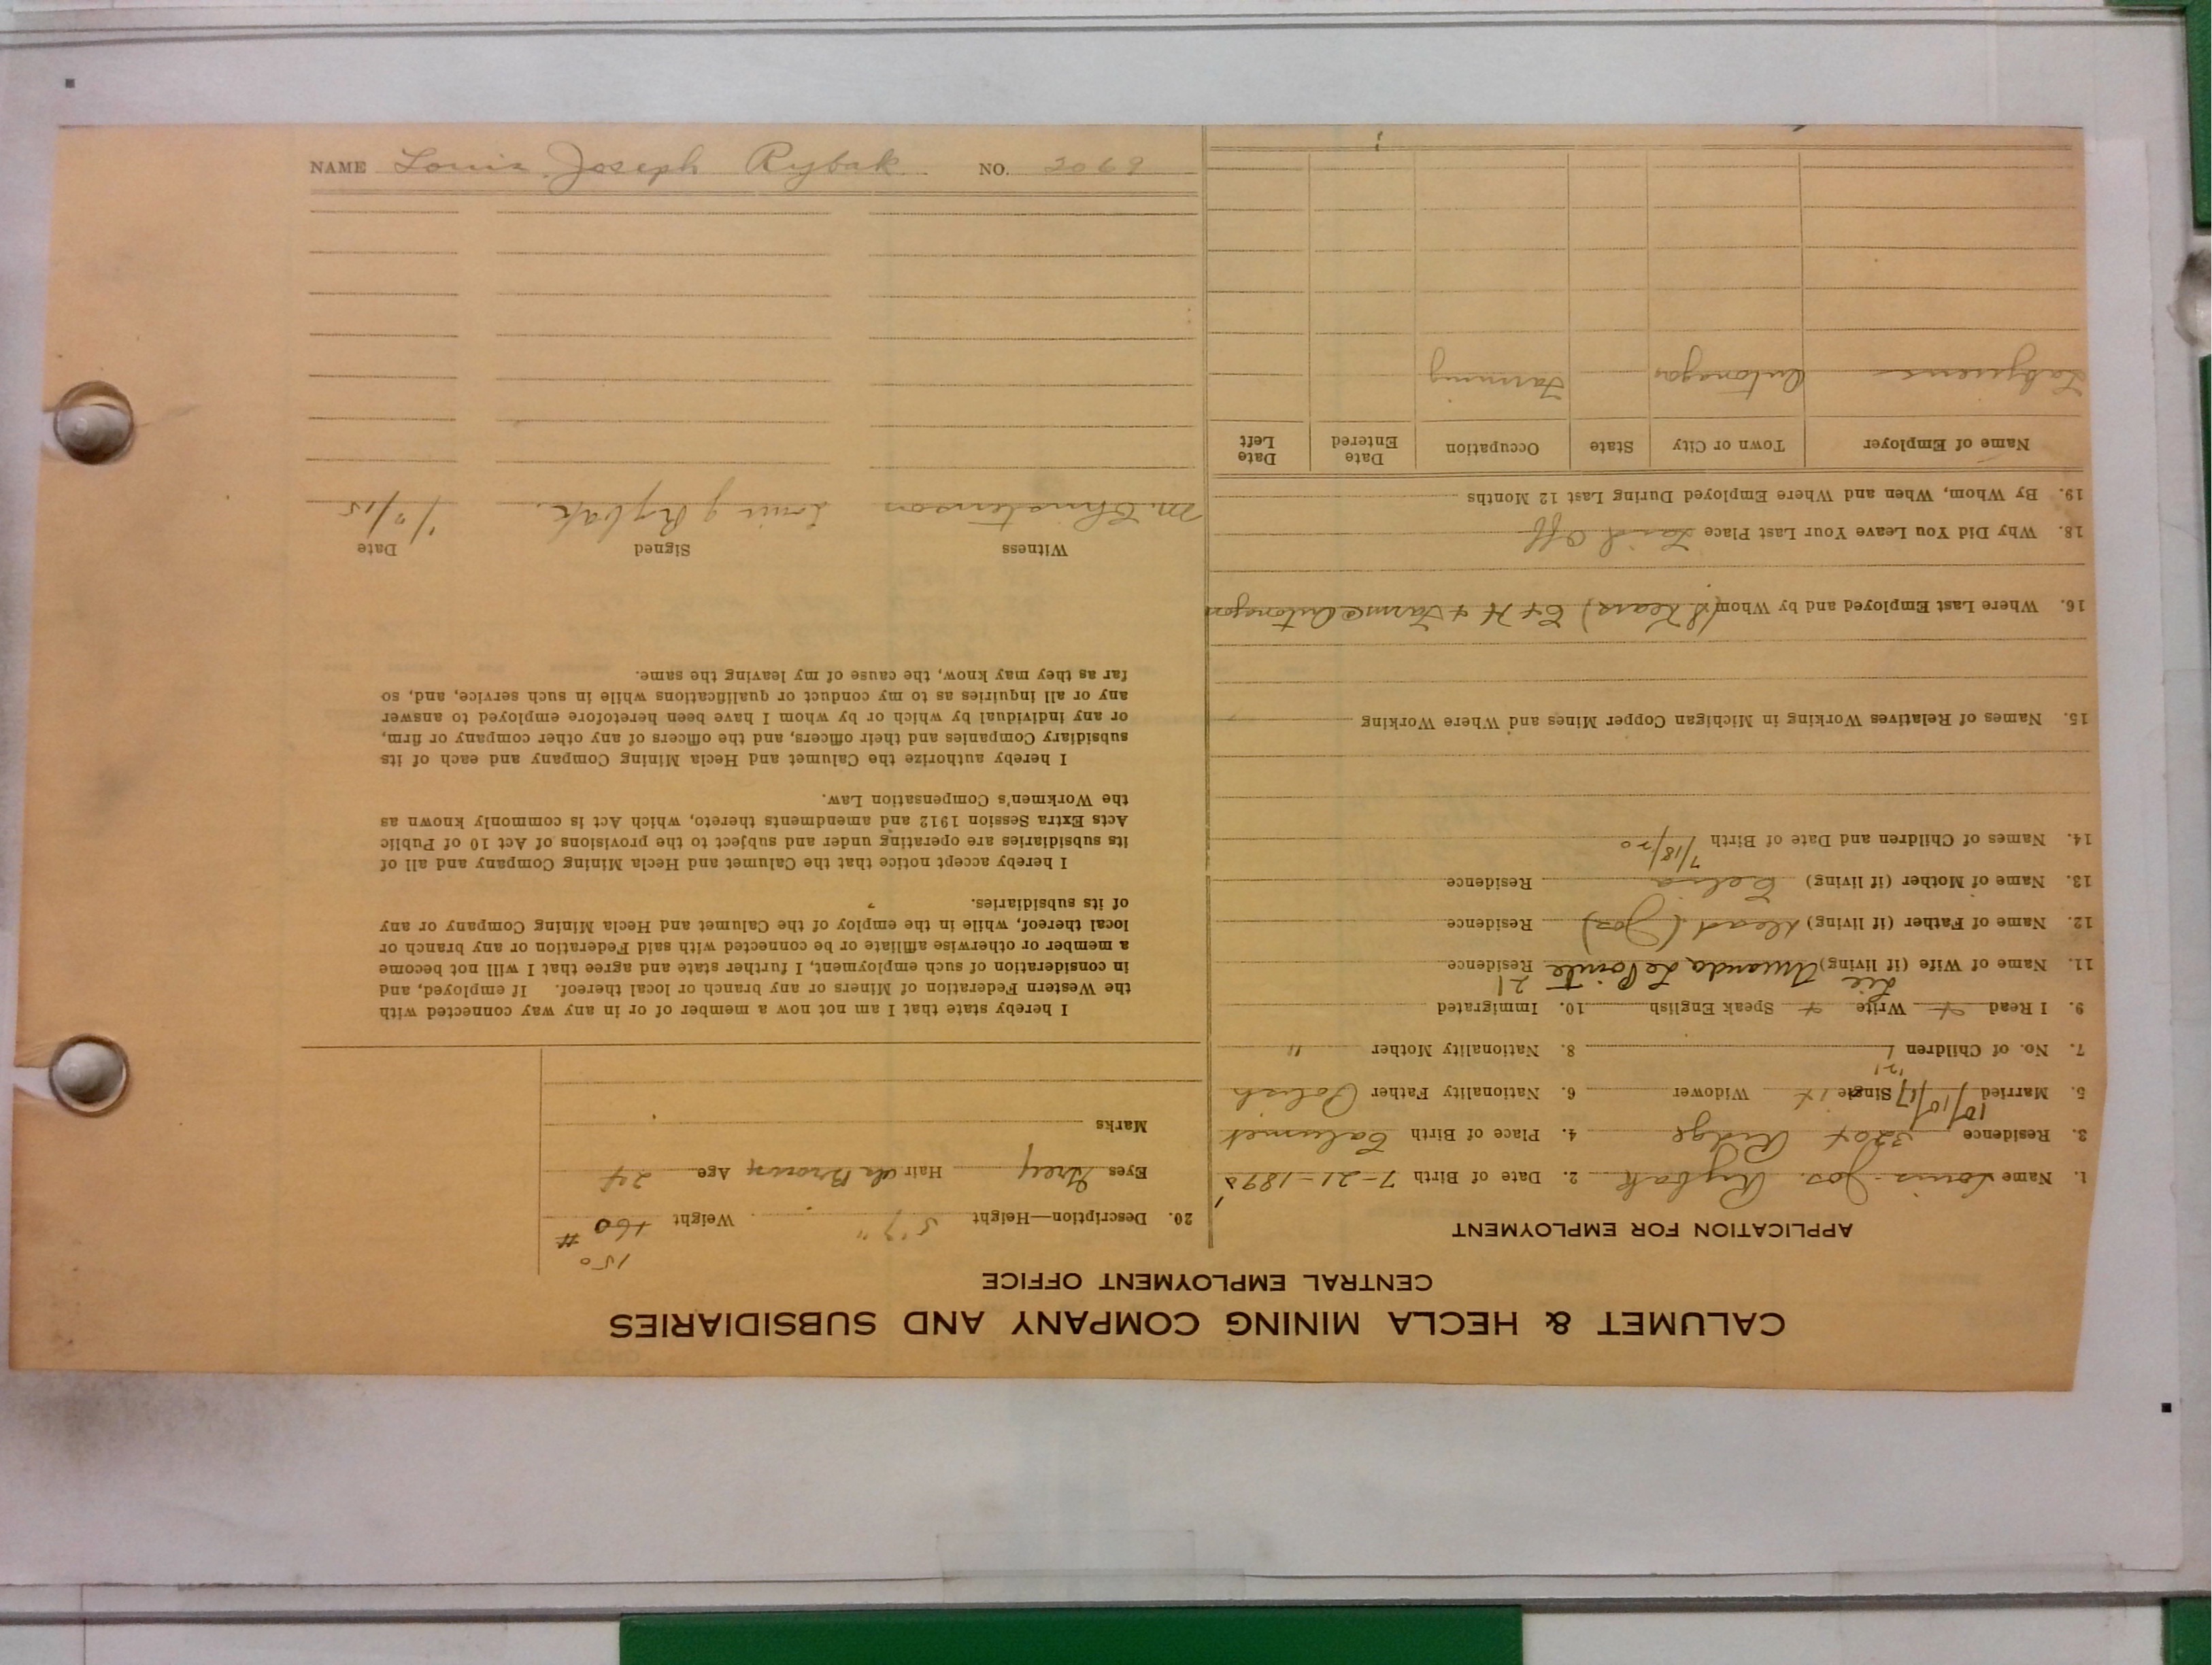 CALUMET & HECLA MINING COMPANY AND SUBSIDIARIES
CENTRAL EMPLOYMENT OFFICE
APPLICATION FOR EMPLOYMENT
1. Name Louis Jos. Rybak 2. Date of Birth 7-21-1898
3. Residence 3204 Ridge 4. Place of Birth Calumet
10/10/17
5. Married Single Widower 6. Nationality Father Polish
'21
7. No. of Children 1 8. Nationality Mother "
9. I Read + Write + Speak English 10. Immigrated
21
11. Name of Wife (if living) Amanda LaPointe Residence
12. Name of Father (if living) dead (Jos) Residence
13. Name of Mother (if living) Residence
14. Names of Children and Date of Birth 7/18/20
15. Names of Relatives Working in Michigan Copper Mines and Where Working
16. Where Last Employed and by Whom C + H + Farm Ontonagon
18. Why Did You Leave Your Last Place Laid Off
19. By Whom, When and Where Employed During Last 12 Months
Name of Employer Town or City State Occupation Date Entered Date Left
Ontonagon Farming
150
20. Description—Height 5'7" Weight 160 #
Eyes Grey Hair dk Brown Age 24
Marks
I hereby state that I am not now a member of or in any way connected with
the Western Federation of Miners or any branch or local thereof. If employed, and
in consideration of such employment, I further state and agree that I will not become
a member or otherwise affiliate or be connected with said Federation or any branch or
local thereof, while in the employ of the Calumet and Hecla Mining Company or any
of its subsidiaries.
I hereby accept notice that the Calumet and Hecla Mining Company and all of
its subsidiaries are operating under and subject to the provisions of Act 10 of Public
Acts Extra Session 1912 and amendments thereto, which Act is commonly known as
the Workmen's Compensation Law.
I hereby authorize the Calumet and Hecla Mining Company and each of its
subsidiary Companies and their officers, and the officers of any other company or firm,
or any individual by which or by whom I have been heretofore employed to answer
any or all inquiries as to my conduct or qualifications while in such service, and, so
far as they may know, the cause of my leaving the same.
Witness Signed Date
M. Christenson Louis J Rybak.
NAME Louis Joseph Rybak NO. 2069